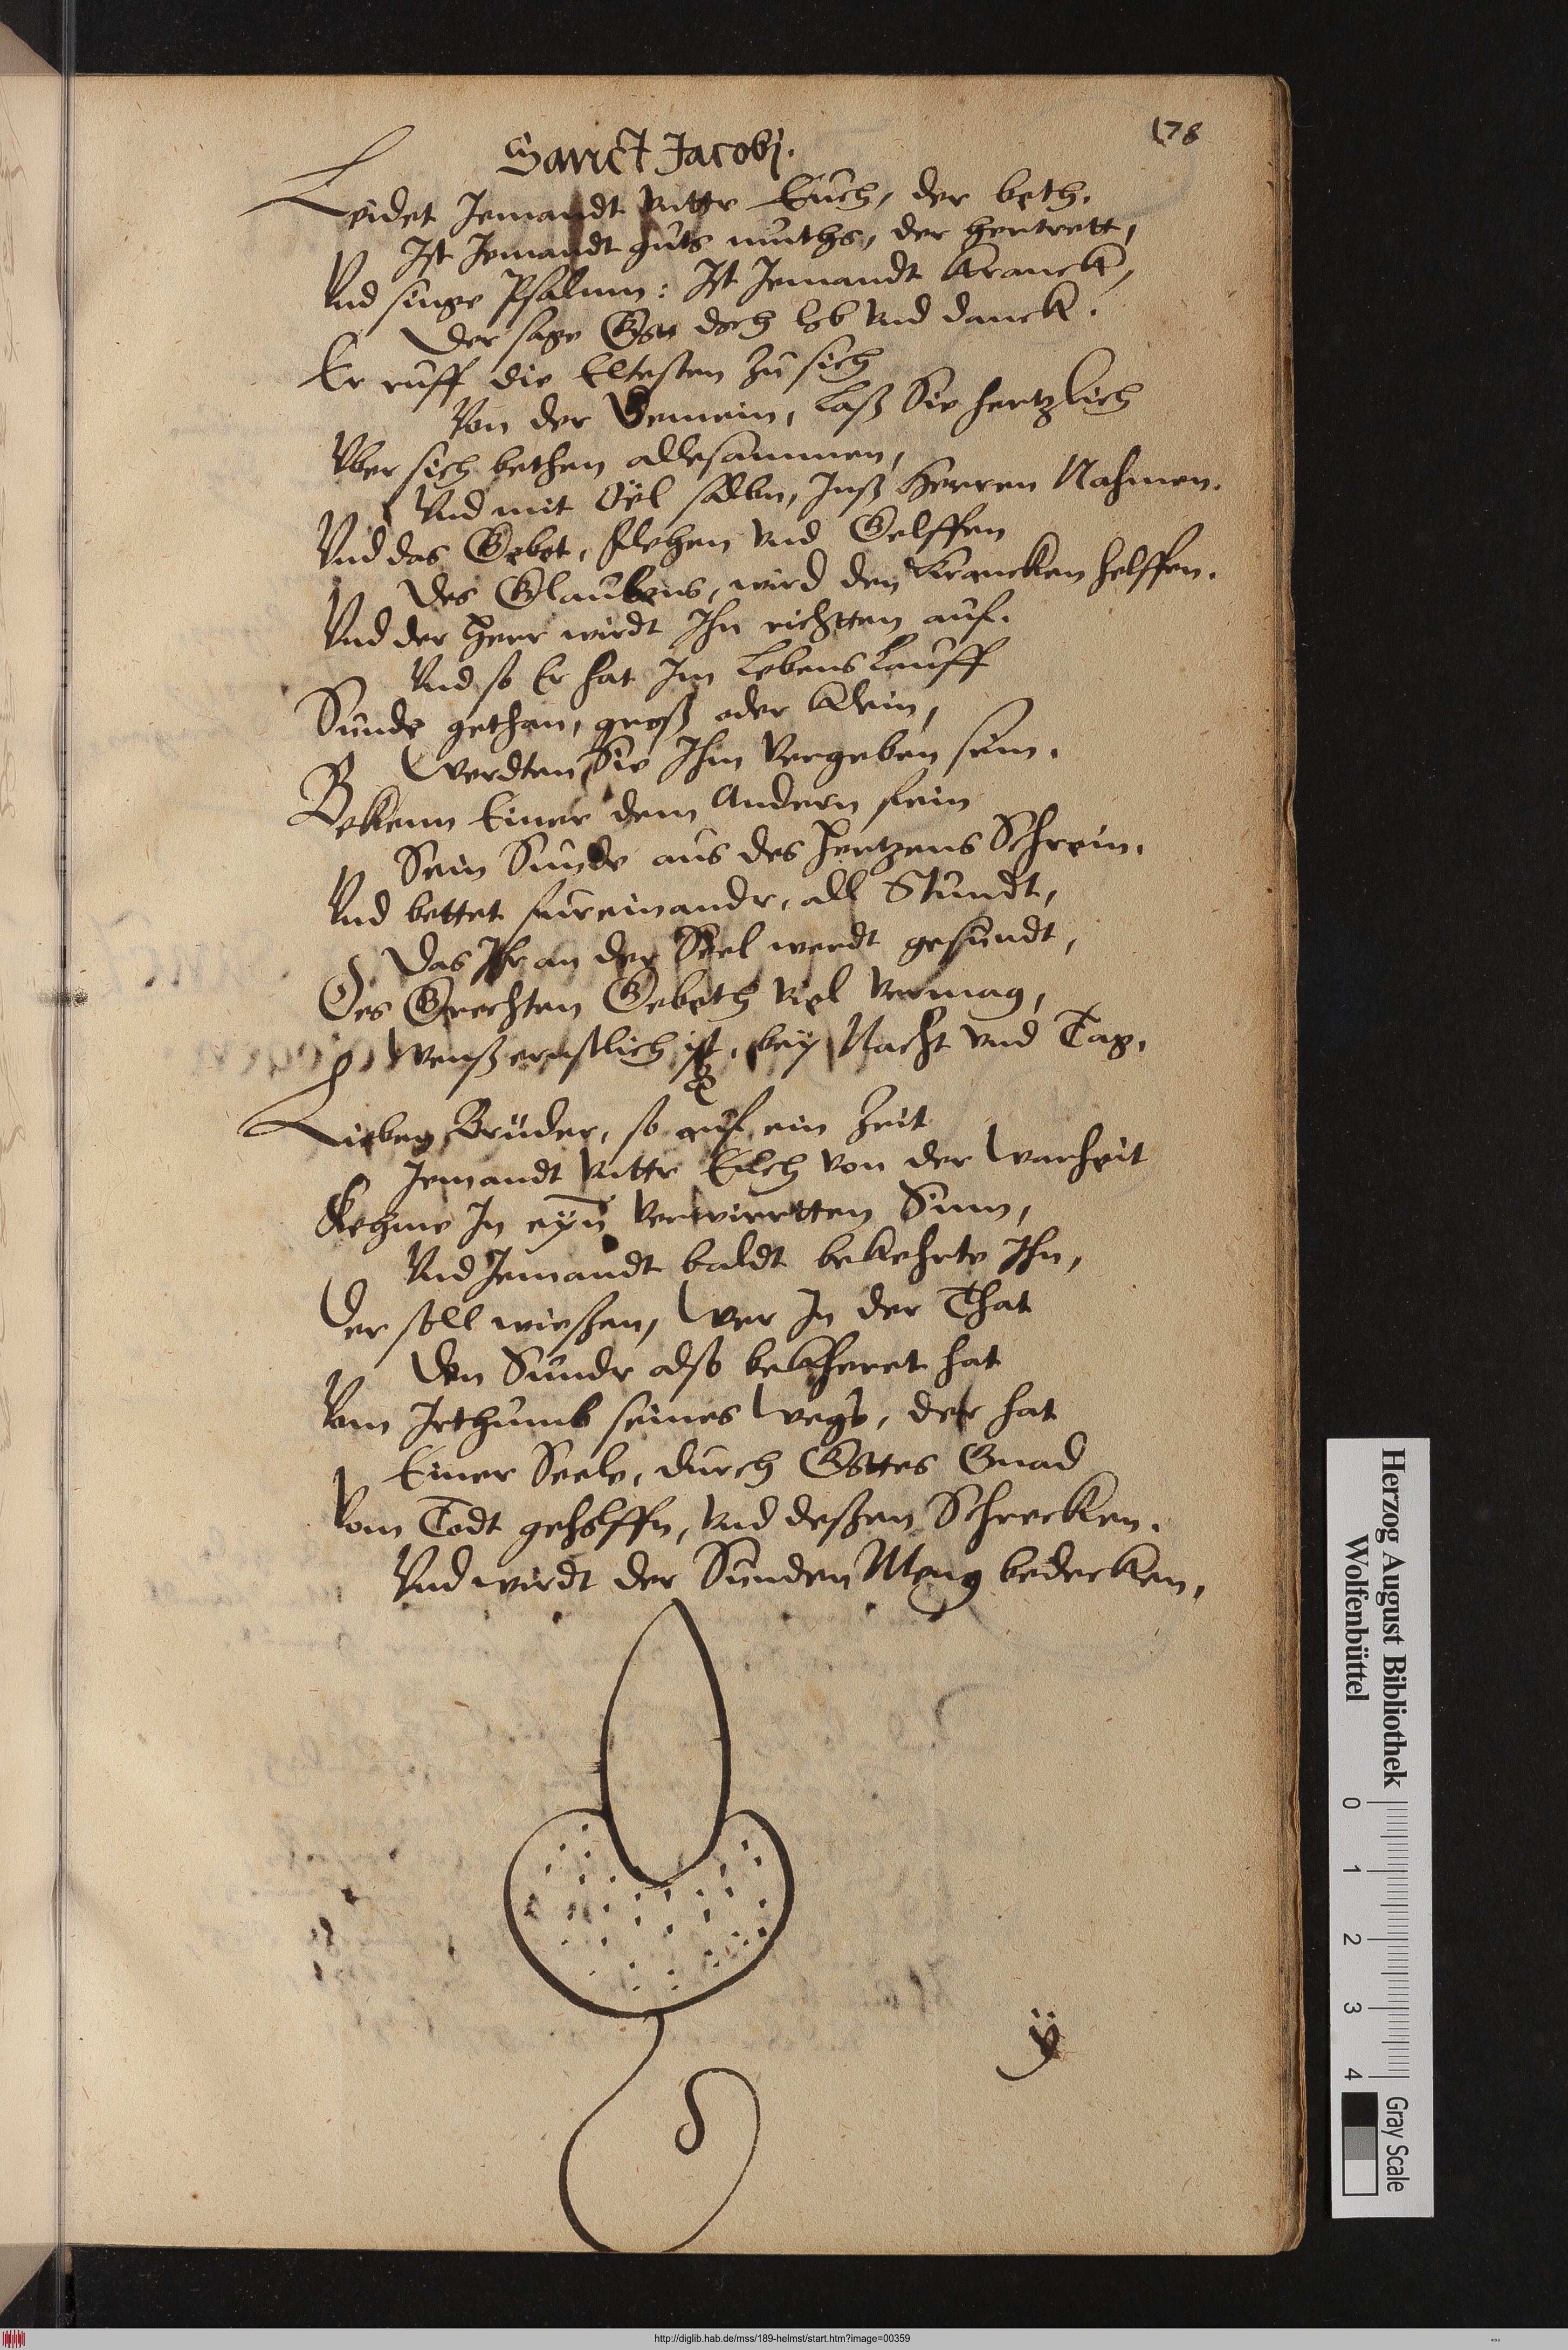 178
Sanct Jacobj.
Leidet Jemandt unttr Euch, der beth.
Ist Jemandt guts muths, der hertrett,
Vnd singe Psalmm: Ist Jemandt kranck,
Der sage Gott doch lob vnd danck.
Er ruff die Eltesten zu sich
Von der Gemein, laß Sie hertzlich
Vber sich bethen allesammen,
Vnd mit Öyl salbn, Inß Herren Nahmen.
Vnd das Gebet, flehen vnd Gelffen
Des Glaubens, wird den krancken helffen.
Vnd der Herr wirdt Ihn richtten auf.
Vnd so Er hat Im Lebens Lauff
Sunde gethan, groß oder klein,
Werdten Sie Ihm Vergeben sein.
Bekenn Einer dem Andern fein
Sein Sunde aus des Hertzens Schrein.
Vnd bettet fureinandr, all Stundt,
Das Ihr an der Seel werdt gesundt,
Des Grechten Gebeth viel vermag,
Wenß ernstlich ist, bey Nacht vnd Tag.
Lieben Brüder, so auf ein Zeit
Jemandt unttr Euch von der Warheit
Kehme In eyn verwirrtten Sinn,
Vnd Jemandt baldt bekehrte Ihn,
Der soll wießen, Wer In der That
Den Sundr also bekheret hat
Vom Irthumb seines Wegs, der hat
Einer Seele, durch Gottes Gnad
Vom Todt geholffn, vnd deßen Schrecken.
Vnd wirdt der Sunden Meng bedecken,
ÿ
Herzog August Bibliothek
Wolfenbüttel
0 1 2 3 4
Gray Scale
http://diglib.hab.de/mss/189-helmst/start.htm?image=00359